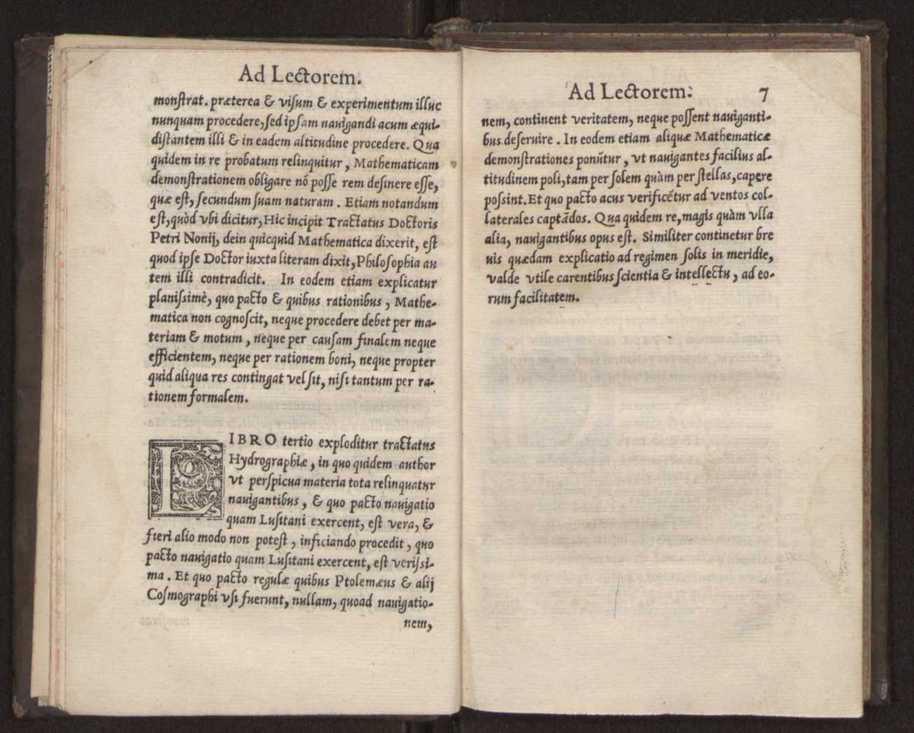 Ad Lectorem.
monſtrat. præterea & viſum & experimentum illuc
nunquam procedere, ſed ipſam nauigandi acum æqui-
diſtantem illi & in eadem altitudine procedere. Qua
quidem in re probatum relinquitur, Mathematicam
demonſtrationem obligare nõ poſſe rem deſinere eſſe,
quæ eſt, ſecundum ſuam naturam. Etiam notandum
eſt, quòd vbi dicitur, Hic incipit Tractatus Doctoris
Petri Nonij, dein quicquid Mathematica dixerit, eſt
quod ipſe Doctor iuxta literam dixit, Philoſophia au
tem illi contradicit. In eodem etiam explicatur
planiſsimè, quo pacto & quibus rationibus, Mathe-
matica non cognoſcit, neque procedere debet per ma-
teriam & motum, neque per cauſam finalem neque
efficientem, neque per rationem boni, neque propter
quid aliqua res contingat vel ſit, niſi tantum per ra-
tionem formalem.
LIBRO tertio exploditur tractatus
Hydrographiæ, in quo quidem author
vt perſpicua materia tota relinquatur
nauigantibus, & quo pacto nauigatio
quam Luſitani exercent, eſt vera, &
fieri alio modo non poteſt, inficiando procedit, quo
pacto nauigatio quam Luſitani exercent, eſt veriſsi-
ma. Et quo pacto regulæ quibus Ptolemæus & alij
Coſmographi vſi fuerunt, nullam, quoad nauigatio-
nem,
Ad Lectorem. 7
nem, continent veritatem, neque poſſent nauiganti-
bus deſeruire. In eodem etiam aliquæ Mathematicæ
demonſtrationes ponũtur, vt nauigantes facilius al-
titudinem poli, tam per ſolem quàm per ſtellas, capere
poſsint. Et quo pacto acus verificẽtur ad ventos col-
laterales captãdos. Qua quidem re, magis quàm vlla
alia, nauigantibus opus eſt. Similiter continetur bre
uis quædam explicatio ad regimen ſolis in meridie,
valde vtile carentibus ſcientia & intellectu, ad eo-
rum facilitatem.